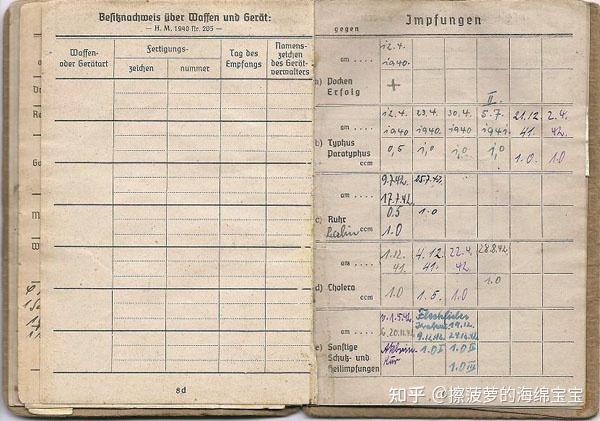 Besitznachweis über Waffen und Gerät:
— H. M. 1940 Nr. 205 —
Waffen-
oder Gerätart
Fertigungs-
zeichen
nummer
Tag des
Empfangs
Namens-
zeichen
des Gerät-
verwalters
8d
Impfungen
gegen
am
12.4.
1940.
a) Pocken
Erfolg
+
II.
am
12.4. 23.4. 30.4. 5.7. 21.12. 2.4.
1940 1940. 1940 1941. 41. 42.
b) Typhus
Paratyphus
ccm
0,5 1,0 1,0 1,0 1.0 1.0
am
9.7.42. 25.7.42.
17.7.42.
c) Ruhr
ccm
0.5 1.0
1.0
am
1.12. 4.12. 22.4. 28.8.42.
41. 41. 42.
d) Cholera
ccm
1.0 1.5 1.0 1.0
am
v. 1.5.42.
19.12.
9.12.42.
e) Sonstige
Schutz- und
Heilimpfungen
Kur
1.0 I 1.0 II
1.0 III
知乎 @擦菠萝的海绵宝宝